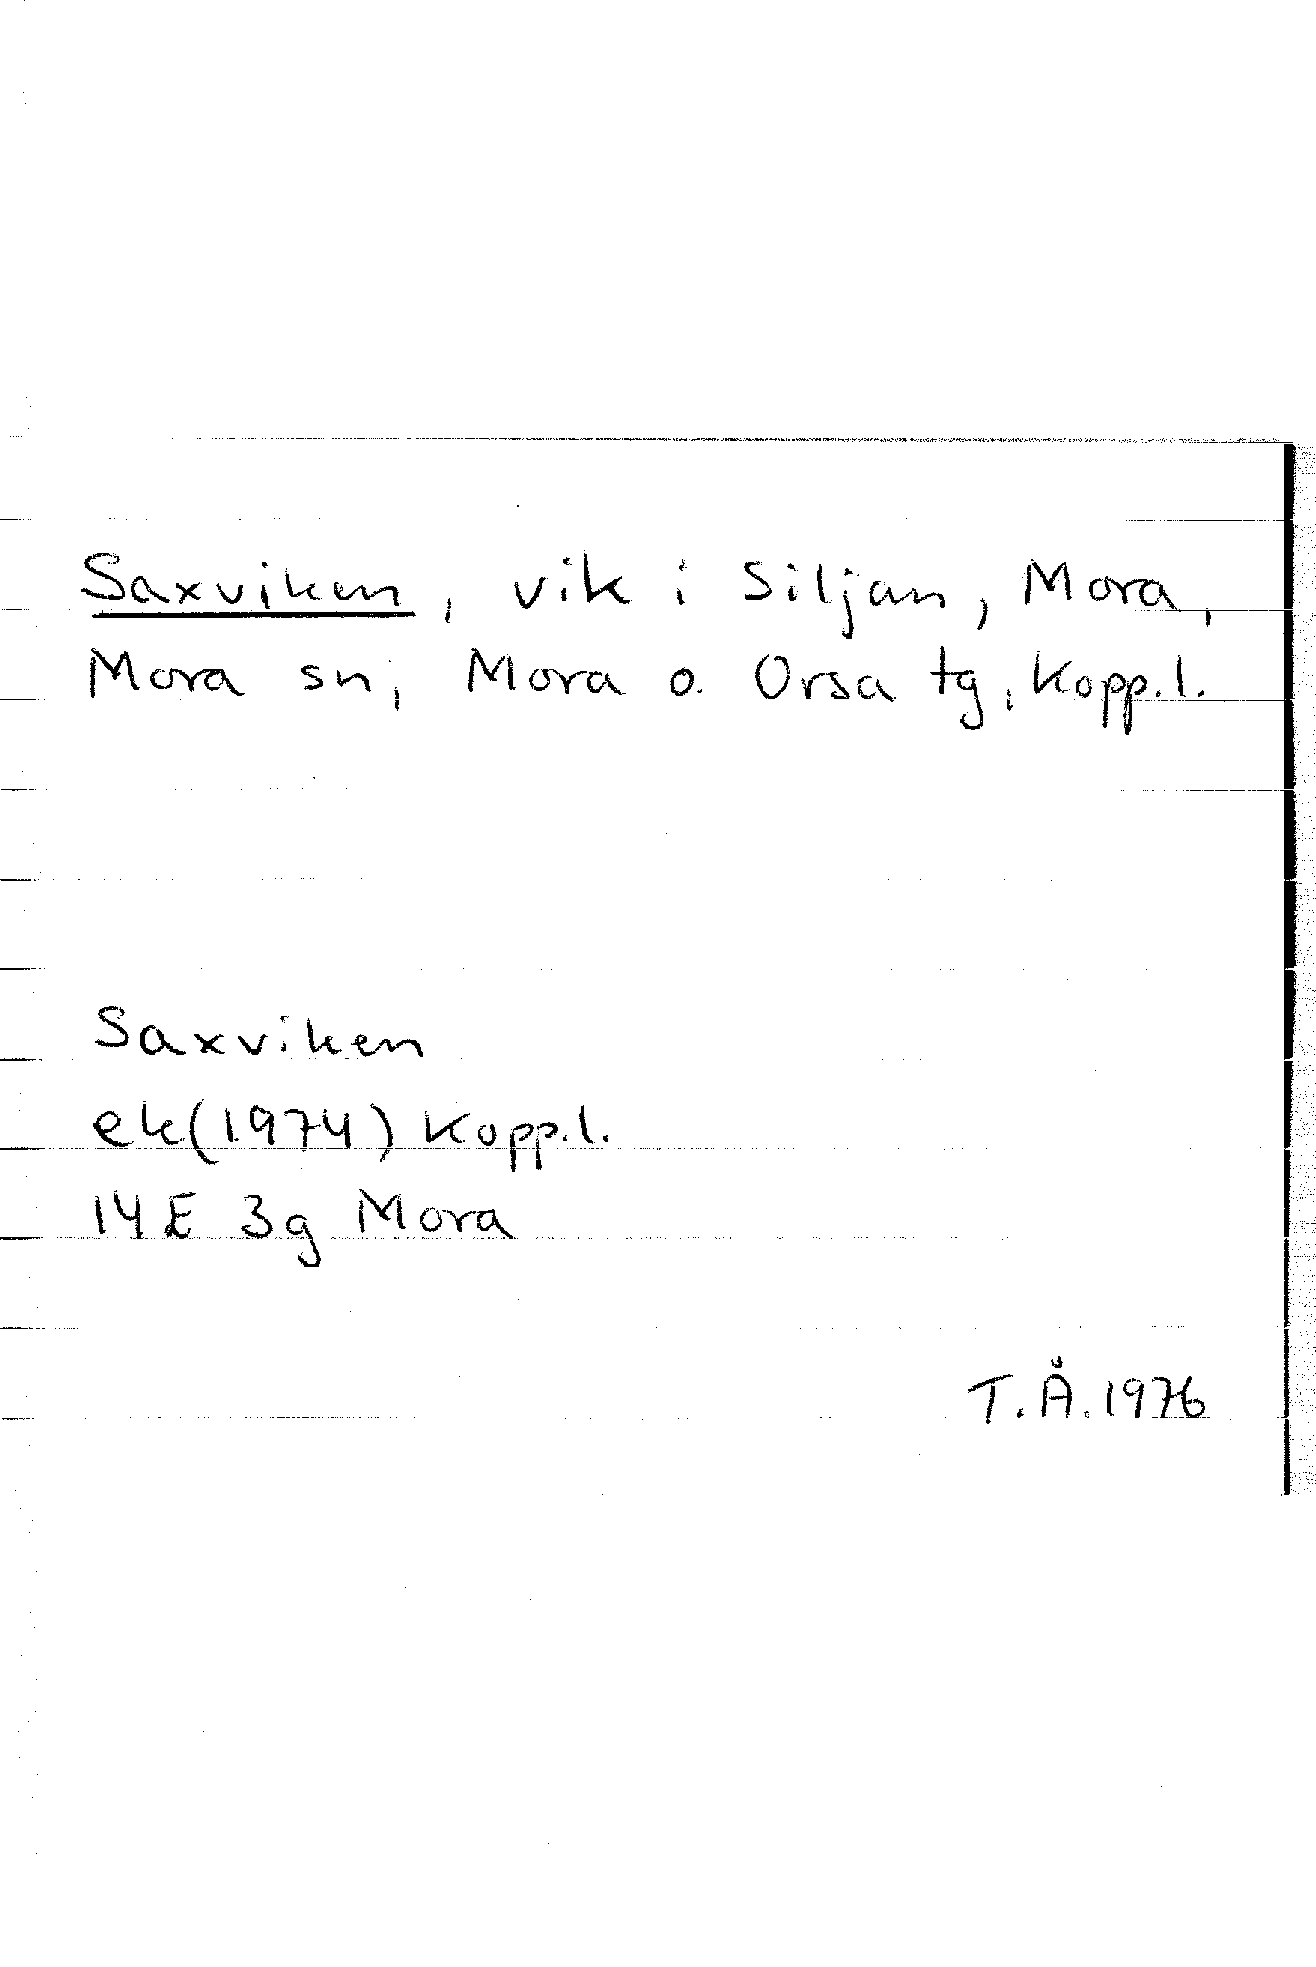 Saxviken, vik i Siljan, Mora,
Mora sn, Mora o. Orsa tg, Kopp.l.
Saxviken
ek(1974) Kopp.l.
14E 3g Mora
T.Å.1976